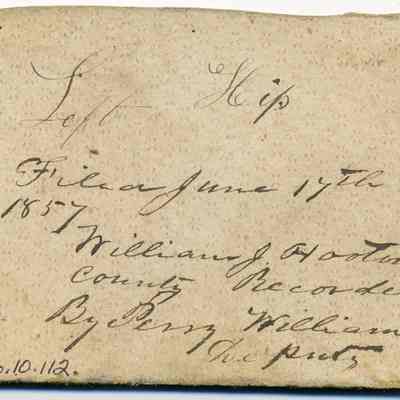 Left Hip
Filed June 17th
1857
William J. Hooton
County Recorde
By Perry William
Deputy
.10.112.